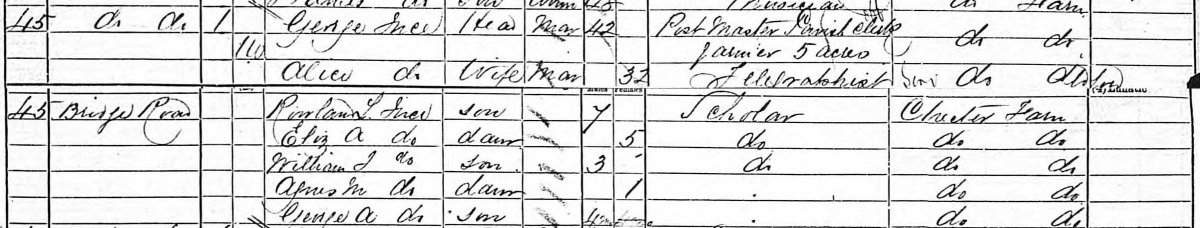 45 do do 1 George Ince Head Mar 42 Post Master Parish Clerk do do
110 farmer 5 acres
Alice do Wife Mar 32 Telegraphist do do
45 Bridge Road Rowland L. Ince son 7 Scholar Chester Farn
Eliz A do daur 5 do do do
William J do son 3 do do do
Agnes M do daur 1 do do
George A do son 4m do do